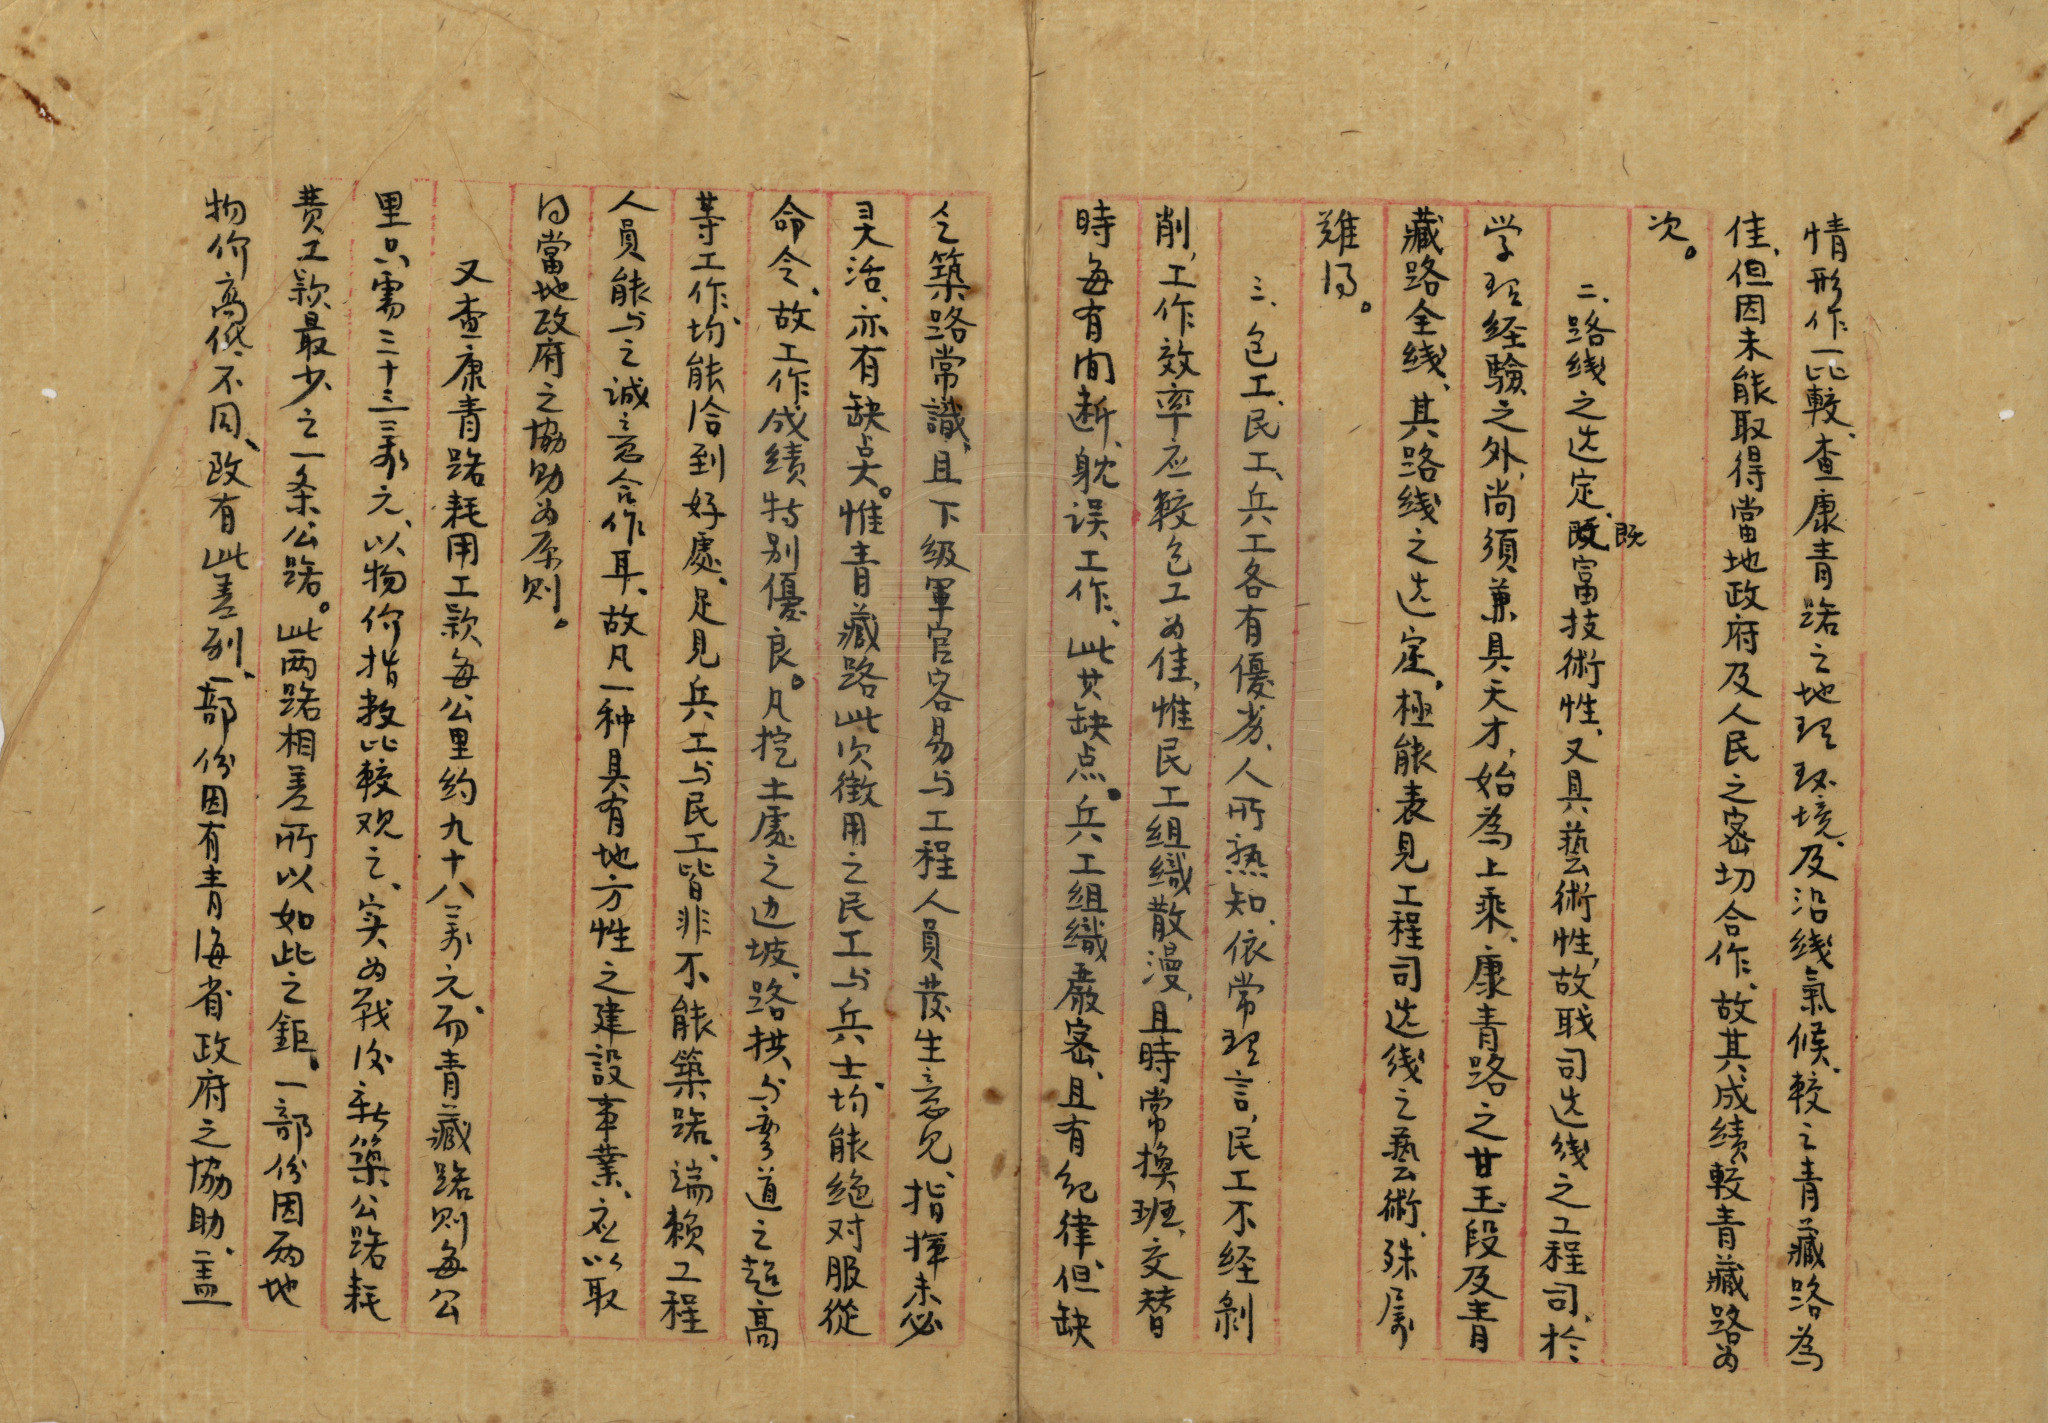 情形作一比較、查康青路之地理环境、及沿綫氣候、較之青藏路為
佳、但因未能取得當地政府及人民之密切合作、故其成绩較青藏路为
次。
二、路线之选定、既富技術性、又具藝術性、故戝司选线之工程司、於
既
学理经驗之外、尚须兼具天才、始為上乘、康青路之甘玉段及青
藏路全线、其路线之选定、極能表見工程司选线之藝術、殊属
难得。
三、包工、民工、兵工各有優劣、人所熟知、依常理言、民工不经剝
削、工作效率应較包工为佳、惟民工組織散漫、且時常換班、交替
時每有间断、躭误工作、此其缺点。兵工組織嚴密、且有纪律、但缺
乏築路常識、且下级軍官容易与工程人員發生意见、指揮未必
灵活、亦有缺点。惟青藏路此次徵用之民工与兵士、均能绝对服從
命令、故工作成绩特别優良。凡挖土處之边坡、路拱、与弯道之超高
等工作、均能恰到好處、足見兵工与民工皆非不能築路、端赖工程
人員能与之诚意合作耳、故凡一种具有地方性之建設事業、应以取
得當地政府之協助为原则。
又查康青路耗用工款、每公里约九十八萬元、而青藏路则每公
里只需三十三萬元、以物价指数比較观之、实为戰後新築公路耗
费工款最少之一条公路。此两路相差所以如此之鉅、一部份因两地
物价高低不同、致有此差别、一部份因有青海省政府之協助、盖